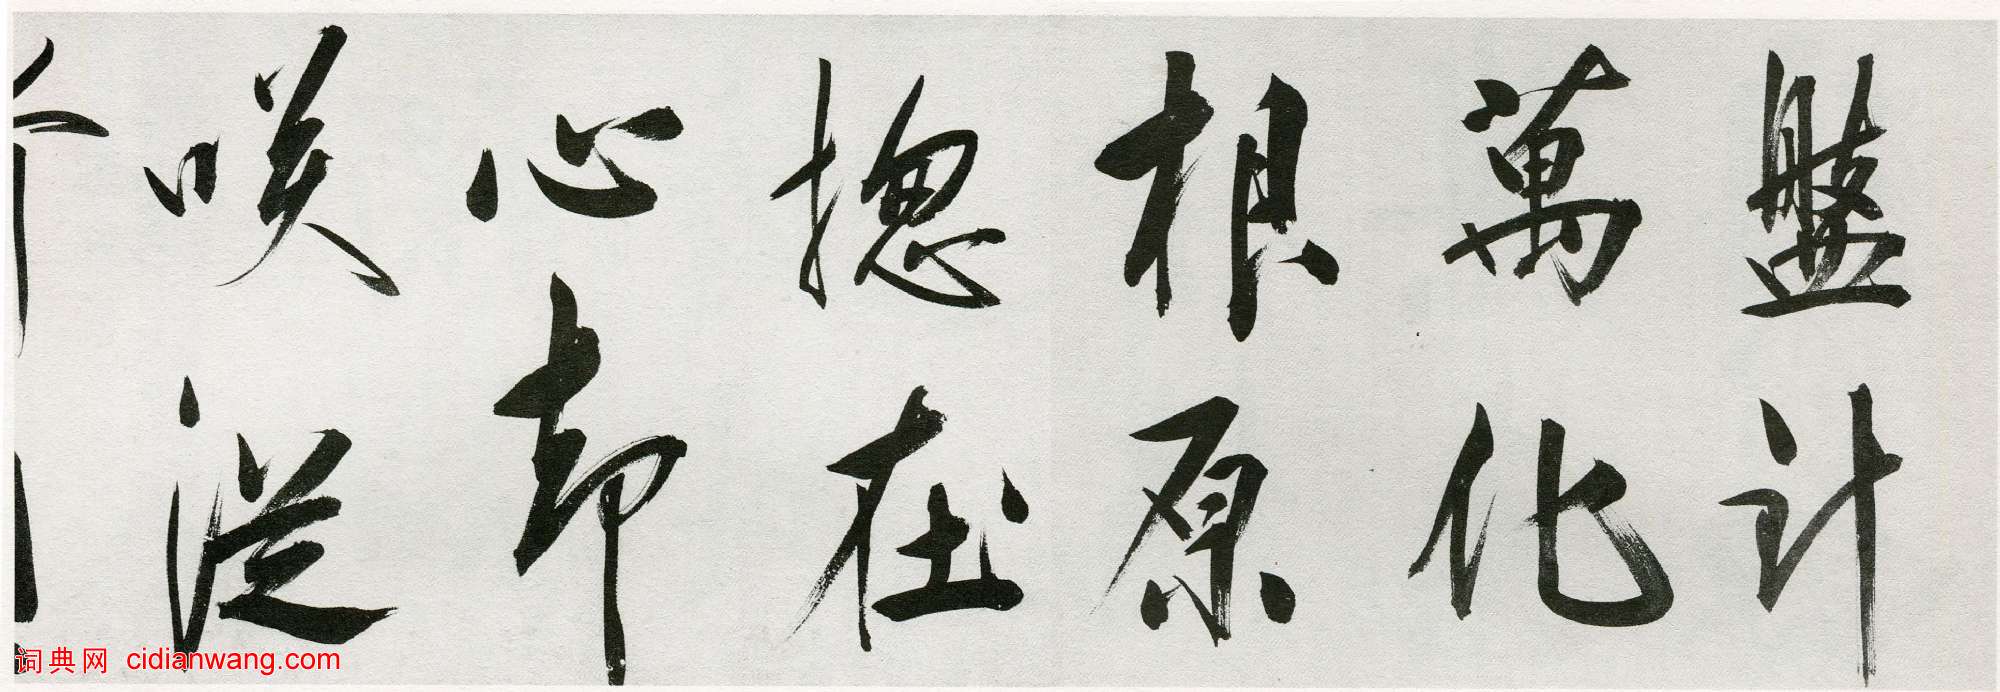 盤針
萬化
根原
揔在
心却
咲從
词典网 cidianwang.com